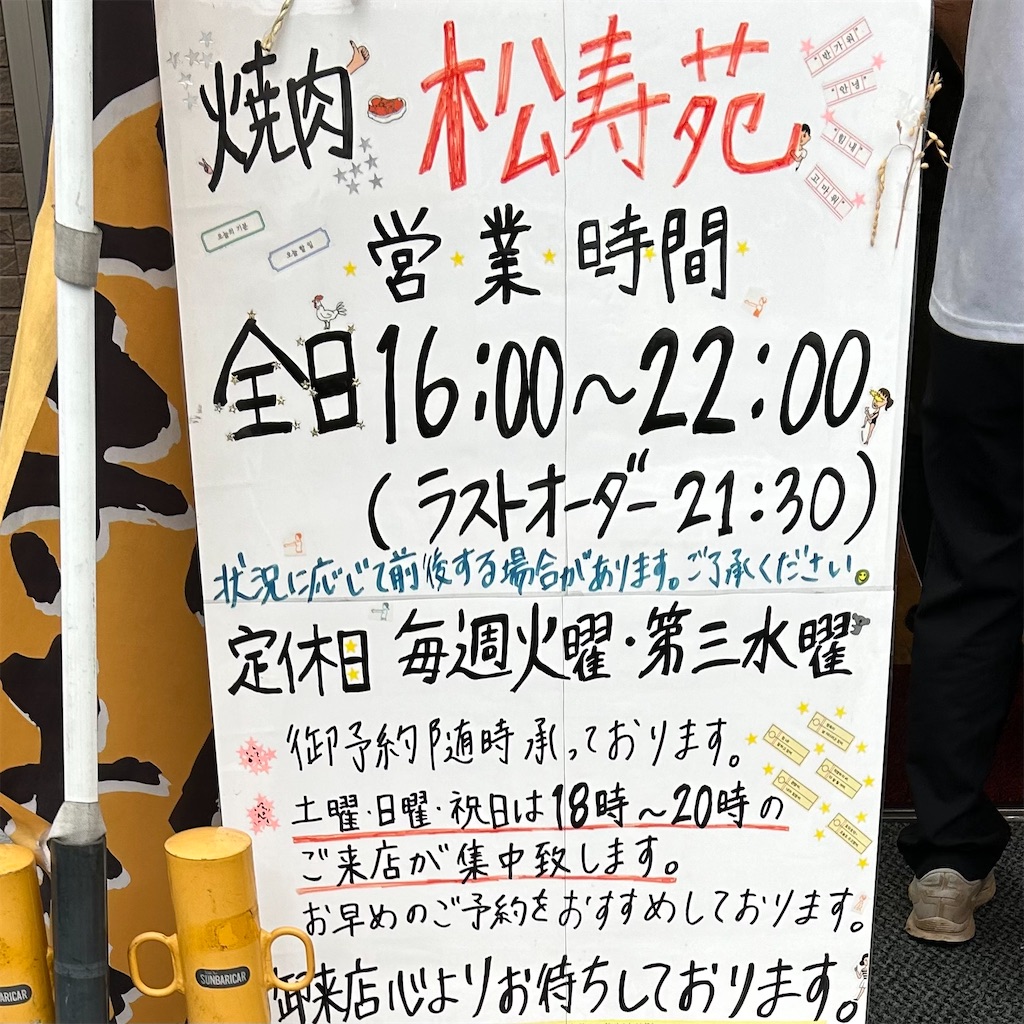 焼肉 松寿苑
"반가워"
"안녕"
"힘내"
"고마워"
오늘의 기분
오늘 할 일
営業時間
全日16:00〜22:00
(ラストオーダー21:30)
状況に応じて前後する場合があります。ご了承ください。
定休日 毎週火曜・第三水曜
御予約随時承っております。
土曜・日曜・祝日は18時〜20時の
ご来店が集中致します。
お早めのご予約をおすすめしております。
御来店心よりお待ちしております。
SUNBARICAR
BARICAR